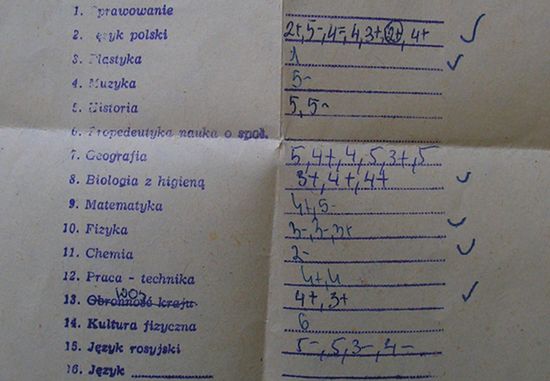 1. Sprawowanie
2. Język polski 2+, 5-, 4-, 4, 3+, 2+, 4+
3. Plastyka 1
4. Muzyka 5-
5. Historia 5, 5-
6. Propedeutyka nauka o społ.
7. Geografia 5, 4+, 4, 5, 3+, 5
8. Biologia z higieną 3+, 4+, 4+
9. Matematyka 4+, 5-
10. Fizyka 3-, 3-, 3+
11. Chemia 2-
12. Praca - technika 4+, 4
WOS
13. Obronność kraju 4+, 3+
14. Kultura fizyczna 6
15. Język rosyjski 5-, 5, 3-, 4-
16. Język